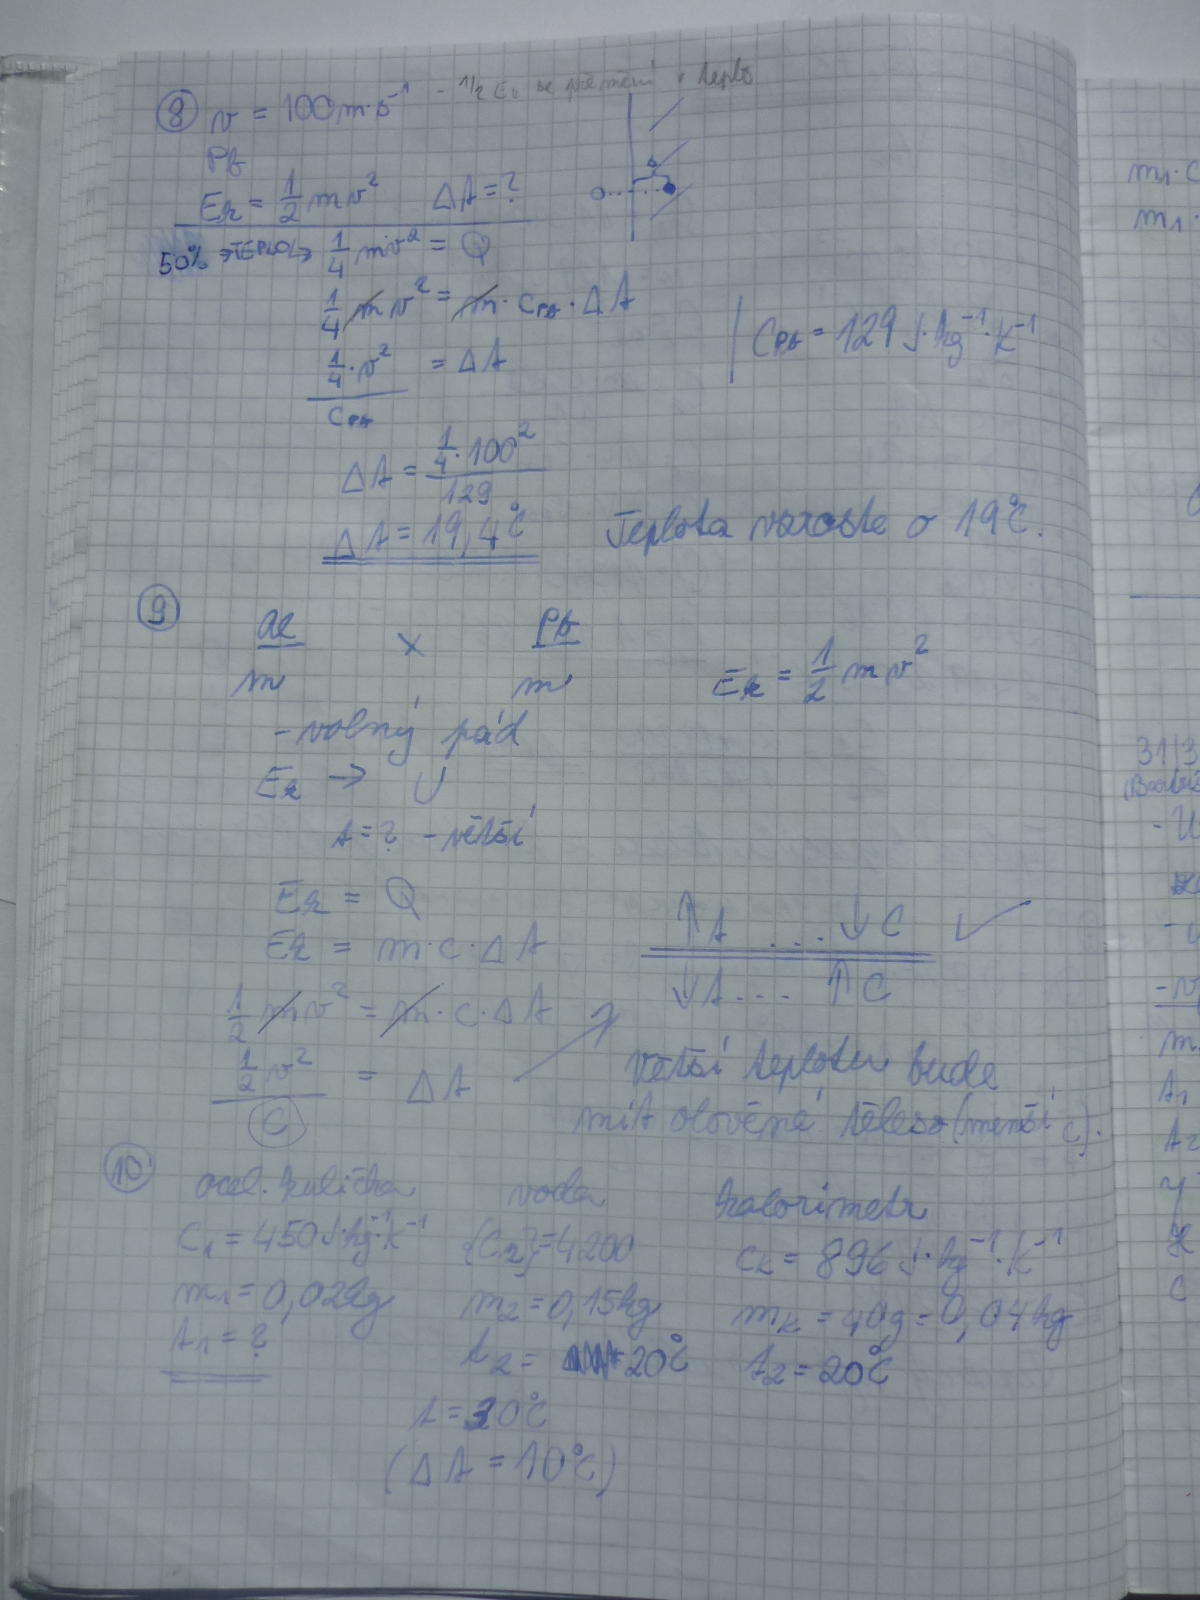 8 v = 100 m·s⁻¹ - 1/2 Ek se přemění v teplo
Pb
Ek = 1/2 mv² Δt = ?
50% →TEPLO→ 1/4 mv² = Q
1/4 mv² = m · cPb · Δt
cPb = 129 J·kg⁻¹·K⁻¹
1/4 · v² / cPb = Δt
Δt = 1/4 · 100² / 129
Δt = 19,4°C Teplota vzroste o 19°C.
9
ocel x Pb
m m Ek = 1/2 mv²
- volný pád
Ek → U
t = ? - větší
Ek = Q
Ek = m · c · Δt
↑t ... ↓c ✓
↓t ... ↑c
1/2 mv² = m · c · Δt
1/2 v² / c = Δt
Větší teplotu bude
mít olověné těleso (menší c).
10 ocel. kulička voda kalorimetr
c₁ = 450 J·kg⁻¹·K⁻¹ {c₂} = 4200 ck = 896 J·kg⁻¹·K⁻¹
m₁ = 0,02kg m₂ = 0,15kg mk = 40g = 0,04kg
t₁ = ? t₂ = 20°C t₂ = 20°C
t = 30°C
(Δt = 10°C)
m₁·c
m₁·
31/3
- U
m
t₁
t₂
c